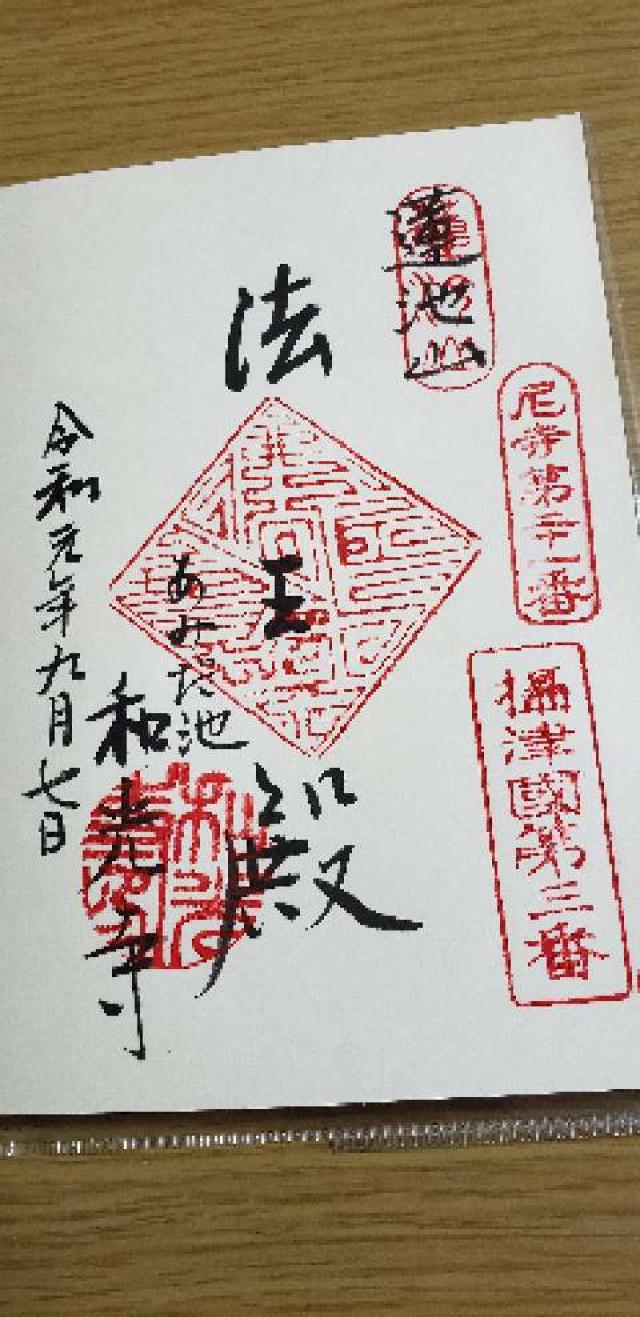 蓮池山
尼寺第二十一番
攝津國第三番
法王殿
あみだ池
和光寺
令和元年九月七日